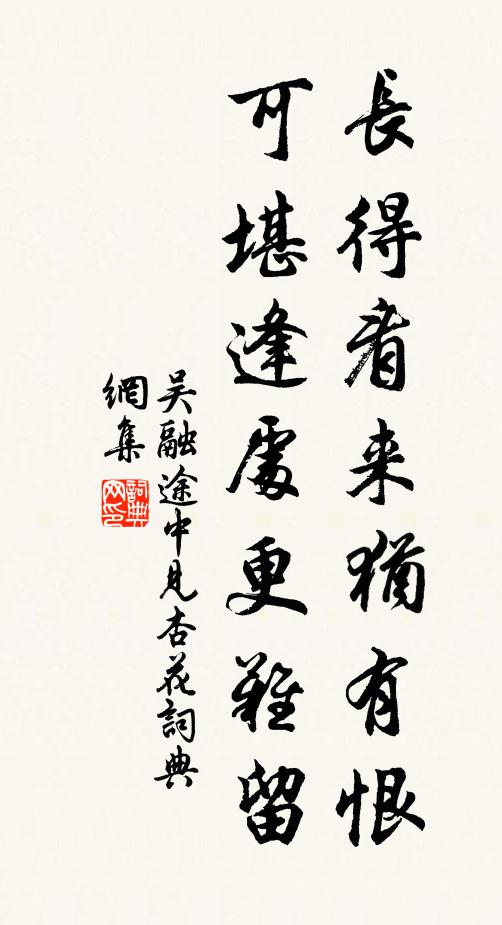 長得看来猶有恨
可堪逢處更難留
吴融途中見杏花詞典
網集
詞典網印